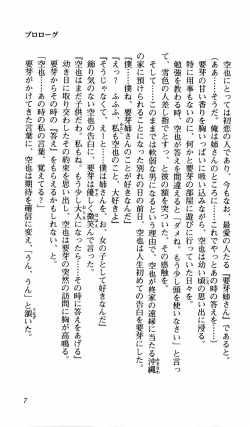 プロローグ
空也にとっては初恋の人であり、今もなお、最愛の人たる『要芽姉さん』であると。
（ああ……そうだ。俺は姉さんのところに……これでやっとあの時の答えを……）
要芽の甘い香りを胸いっぱいに吸い込みながら、空也は幼い頃の思い出に浸る。
特に用事もないのに、何かと要芽の部屋に遊びに行っていた日々を。
勉強を教わる時、空也が答えを間違えると「ダメね。もう少し頭を使いなさい」と言っ
て、雪色の人差し指でとすっ、と彼の額を突ついた、その感触を。
そして……このままでは軟弱な男になるという理由で、空也が柊家の遠縁に当たる沖縄
の家に預けられることになった別れの日の前日、空也は人生初めての告白を要芽にした。
「……僕ね、要芽姉さんのこと……大好きなんだ」
「えっ？　ふふふ、私も空也のこと、好きよ」
「そうじゃなくて、えーと……僕は姉さんを、お、女の子として好きなんだ」
飾り気のない空也の告白に、要芽は優しく微笑んで言った。
「空也はまだ子供だわ。私もね。もう少し大人になったら……その時に答えをあげる」
幼き日に取り交わしたその約束を思い出し、空也は要芽の突然の訪問に胸が高鳴る。
要芽からその時の『答え』をもらえるかもしれない、と。
「空也……あの時の私の言葉、覚えてる？」
要芽がかけてきた言葉に、空也は期待を確信に変え、「うん、うん」と頷いた。
7